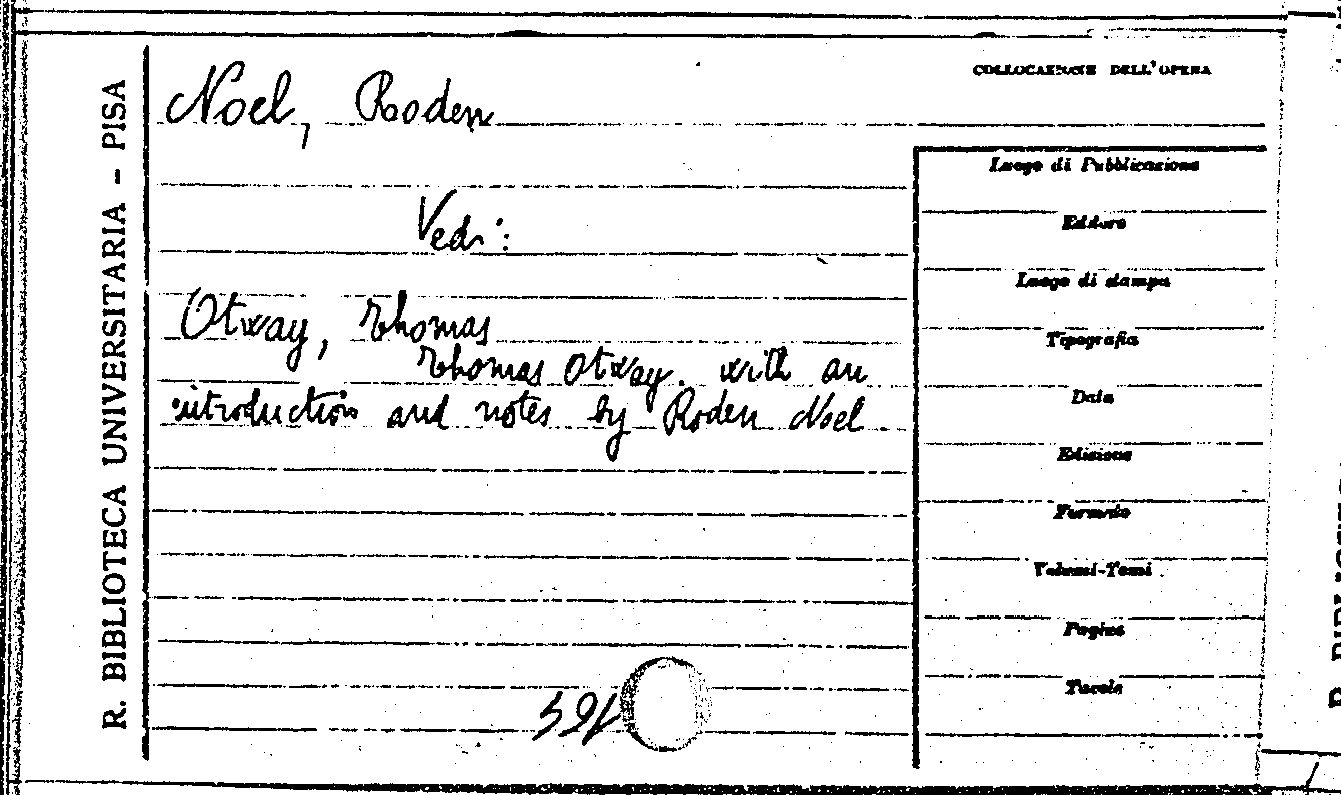 R. BIBLIOTECA UNIVERSITARIA - PISA
Noel, Roden
Vedi:
Otway, Thomas
Thomas Otway. with an
introduction and notes by Roden Noel
COLLOCAZIONE DELL'OPERA
Luogo di Pubblicazione
Editore
Luogo di stampa
Tipografia
Data
Edizione
Formato
Volumi-Tomi
Pagine
Tavole